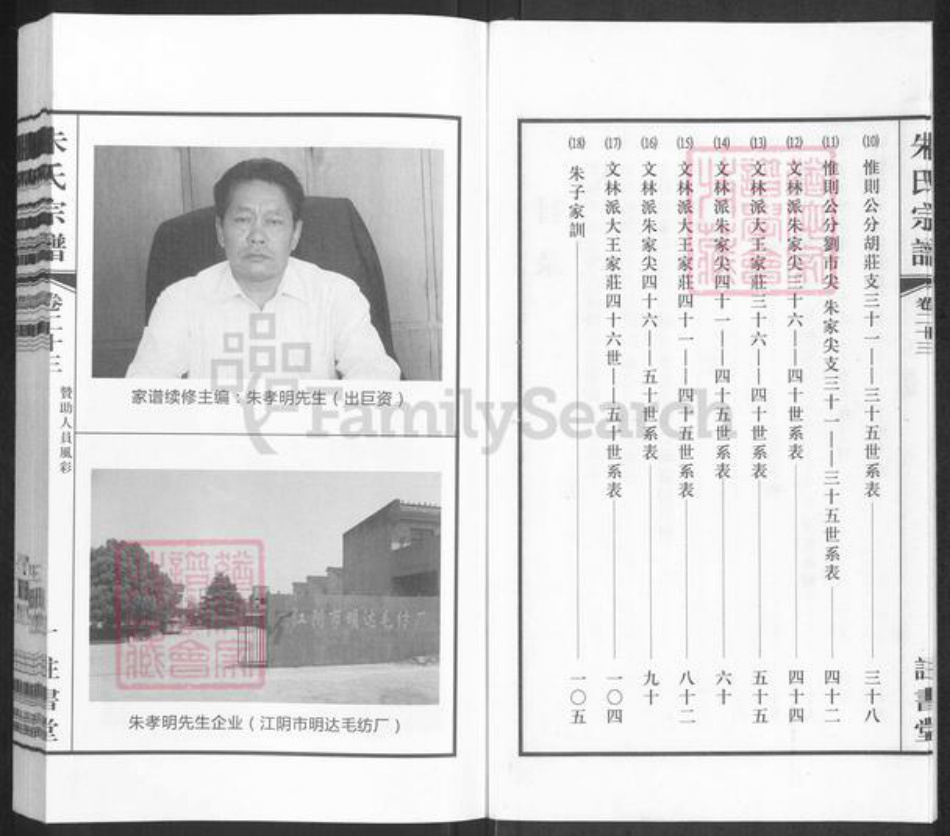 朱氏宗譜
卷二十三
註書堂
(10) 惟則公分胡莊支三十一——三十五世系表 三十八
(11) 惟則公分劉市尖 朱家尖支三十一——三十五世系表 四十二
(12) 文林派朱家尖三十六——四十世系表 四十四
(13) 文林派大王家莊三十六——四十世系表 五十五
(14) 文林派朱家尖四十一——四十五世系表 六十
(15) 文林派大王家莊四十一——四十五世系表 八十二
(16) 文林派朱家尖四十六——五十世系表 九十
(17) 文林派大王家莊四十六世——五十世系表 一〇四
(18) 朱子家訓 一〇五
家谱续修主编：朱孝明先生（出巨资）
江阴市明达毛纺厂
朱孝明先生企业（江阴市明达毛纺厂）
朱氏宗譜
卷二十三
贊助人員風彩
一
註書堂
FamilySearch